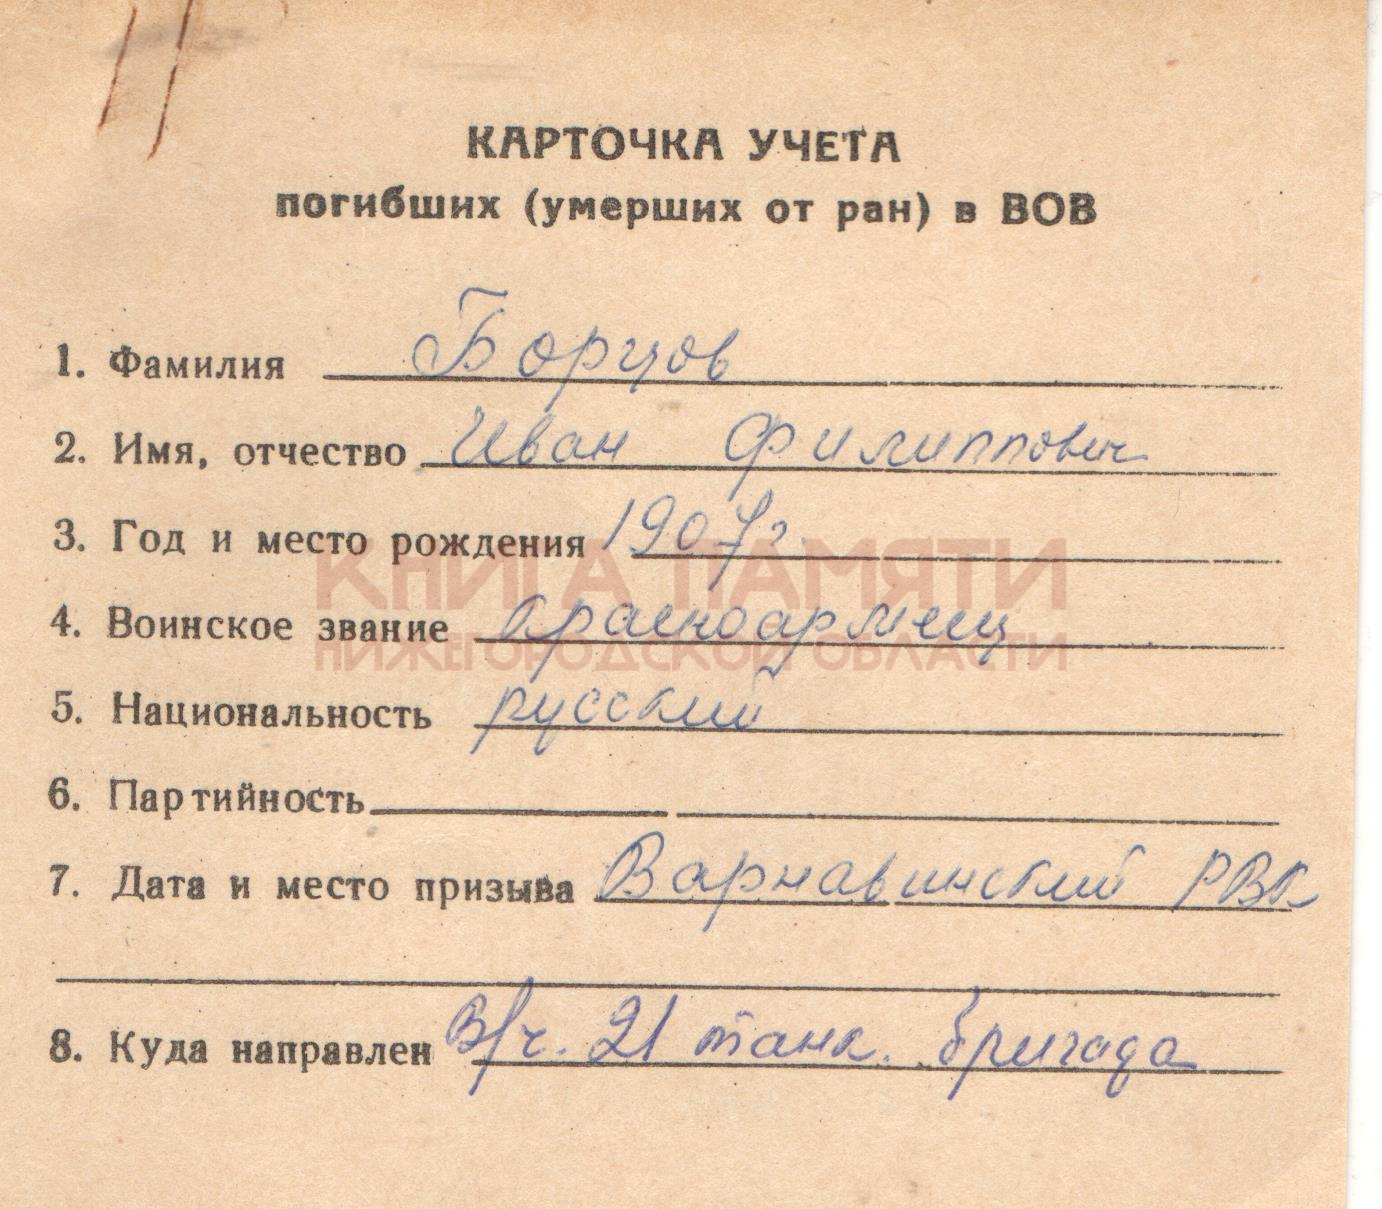 КАРТОЧКА УЧЕТА
погибших (умерших от ран) в ВОВ
1. Фамилия Борцов
2. Имя, отчество Иван Филиппович
3. Год и место рождения 1907 г.
КНИГА ПАМЯТИ
4. Воинское звание красноармеец
НИЖЕГОРОДСКОЙ ОБЛАСТИ
5. Национальность русский
6. Партийность
7. Дата и место призыва Варнавинский РВК
8. Куда направлен В/ч. 21 танк. бригада